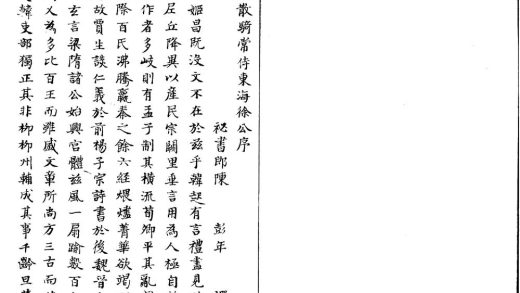 散騎常侍東海徐公序
秘書郎陳 彭年
姬昌既沒文不在於兹乎韓起有言禮盡見
尼丘降異以產民宗闕里垂言用為人極自
作者多岐則有孟子制其橫流荀卿平其亂
際百氏沸騰嬴秦之餘六經煨爐菁華欲竭
故賈生談仁義於前楊子宗詩書於後魏晉
玄言梁隋諸公始興宮體兹風一扇踰數百
人為多比百王而雖盛文章所尚方三古而
韓吏部獨正其非柳柳州輔成其事千齡旦